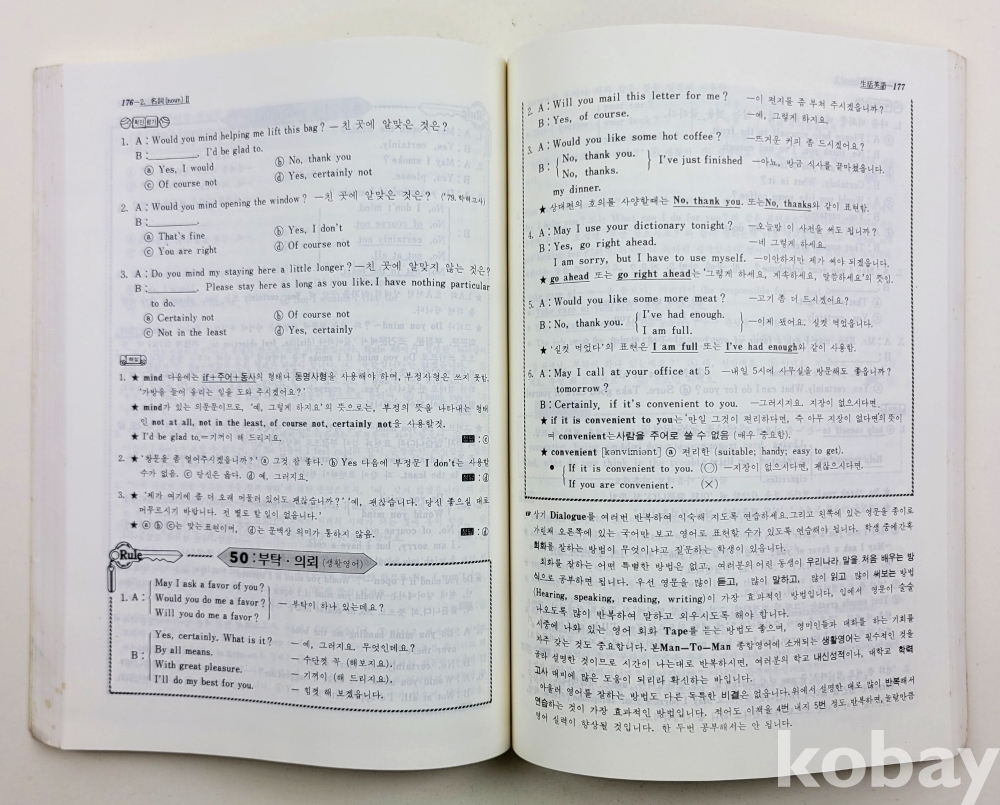 176—2. 名詞(noun) Ⅱ
확인 문제
1. A : Would you mind helping me lift this bag? — 친 곳에 알맞은 것은?
B : ________. I'd be glad to.
ⓐ Yes, I would ⓑ No, thank you
ⓒ Of course not ⓓ Yes, certainly not
2. A : Would you mind opening the window? —친 곳에 알맞은 것은? ('79. 학력고사)
B : ________.
ⓐ That's fine ⓑ Yes, I don't
ⓒ You are right ⓓ Of course not
3. A : Do you mind my staying here a little longer? —친 곳에 알맞지 않는 것은?
B : ________. Please stay here as long as you like. I have nothing particular
to do.
ⓐ Certainly not ⓑ Of course not
ⓒ Not in the least ⓓ Yes, certainly
해설
1. ★ mind 다음에는 if+주어+동사의 형태나 동명사형을 사용해야 하며, 부정사형은 쓰지 못함.
'가방을 들어 올리는 일을 도와 주시겠어요?'
★ mind가 있는 의문문이므로, '예, 그렇게 하지요'의 뜻으로는, 부정의 뜻을 나타내는 형태
인 not at all, not in the least, of course not, certainly not을 사용할것.
★ I'd be glad to.=기꺼이 해 드리지요. 정답 : ⓒ
2. ★ '창문을 좀 열어주시겠습니까?' ⓐ 그것 참 좋다. ⓑ Yes 다음에 부정문 I don't는 사용할
수가 없음. ⓒ 당신은 옳다. ⓓ 예, 그러지요. 정답 : ⓓ
3. ★ '제가 여기에 좀 더 오래 머물러 있어도 괜찮습니까?' '예, 괜찮습니다. 당신 좋으실 대로
머무르시기 바랍니다. 전 별로 할 일이 없습니다.'
★ ⓐ ⓑ ⓒ는 맞는 표현이며, ⓓ는 문맥상 의미가 통하지 않음. 정답 : ⓓ
Rule 50 : 부탁 · 의뢰 (생활영어)
May I ask a favor of you?
1. A : Would you do me a favor? — 부탁이 하나 있는데요?
Will you do me a favor?
Yes, certainly. What is it? — 예, 그러지요. 무엇인데요?
B : By all means. — 수단껏 꼭 (해보지요).
With great pleasure. — 기꺼이 (해 드리지요).
I'll do my best for you. — 힘껏 해 보겠습니다.
生活英語—177
2. A : Will you mail this letter for me? —이 편지를 좀 부쳐 주시겠읍니까?
B : Yes, of course. —예, 그렇게 하지요.
3. A : Would you like some hot coffee? —뜨거운 커피 좀 드시겠어요?
B : No, thank you. I've just finished —아뇨, 방금 식사를 끝마쳤읍니다.
No, thanks.
my dinner.
★ 상대편의 호의를 사양할때는 No, thank you. 또는 No, thanks와 같이 표현함.
4. A : May I use your dictionary tonight? —오늘밤 이 사전을 써도 됩니까?
B : Yes, go right ahead. —네 그렇게 하세요.
I am sorry, but I have to use myself. —미안하지만 제가 써야 되겠읍니다.
★ go ahead 또는 go right ahead는 '그렇게 하세요, 계속하세요, 말씀하세요'의 뜻임.
5. A : Would you like some more meat? —고기 좀 더 드시겠어요?
B : No, thank you. I've had enough. —이제 됐어요. 실컷 먹었읍니다.
I am full.
★ '실컷 먹었다'의 표현은 I am full 또는 I've had enough와 같이 사용함.
6. A : May I call at your office at 5 —내일 5시에 사무실을 방문해도 좋읍니까?
tomorrow?
B : Certainly, if it's convenient to you. —그러시지요. 지장이 없으시다면.
★ if it is convenient to you는 '만일 그것이 편리하다면, 즉 아무 지장이 없다면'의 뜻이
며 convenient는 사람을 주어로 쓸 수 없음 (매우 중요함).
★ convenient [kənvíːniənt] ⓐ 편리한 (suitable; handy; easy to get).
● If it is convenient to you. (○) —지장이 없으시다면, 괜찮으시다면.
If you are convenient. (×)
☞ 상기 Dialogue를 여러번 반복하여 익숙해 지도록 연습하세요. 그리고 왼쪽에 있는 영문을 종이로
가린채 오른쪽에 있는 국어만 보고 영어로 표현할 수가 있도록 연습해야 됩니다. 학생 중에간혹
회화를 잘하는 방법이 무엇이냐고 질문하는 학생이 있읍니다.
회화를 잘하는 어떤 특별한 방법은 없고, 여러분의 어린 동생이 우리나라 말을 처음 배우는 방
식으로 공부하면 됩니다. 우선 영문을 많이 듣고, 많이 말하고, 많이 읽고 많이 써보는 방법
(Hearing, speaking, reading, writing)이 가장 효과적인 방법입니다. 입에서 영문이 술술
나오도록 많이 반복하여 말하고 외우시도록 해야 합니다.
시중에 나와 있는 영어 회화 Tape를 듣는 방법도 좋으며, 영미인들과 대화를 하는 기회를
자주 갖는 것도 중요합니다. 본 Man—To—Man 종합영어에 소개되는 생활영어는 필수적인 것을
골라 설명한 것이므로 시간이 나는대로 반복하시면, 여러분의 학교 내신성적이나, 대학교 학력
고사 대비에 많은 도움이 되리라 확신하는 바입니다.
아울러 영어를 잘하는 방법도 다른 독특한 비결은 없읍니다. 위에서 설명한 대로 많이 반복해서
연습하는 것이 가장 효과적인 방법입니다. 적어도 이책을 4번 내지 5번 정도 반복하면, 놀랄만큼
영어 실력이 향상될 것입니다. 한 두번 공부해서는 안 됩니다.
kobay